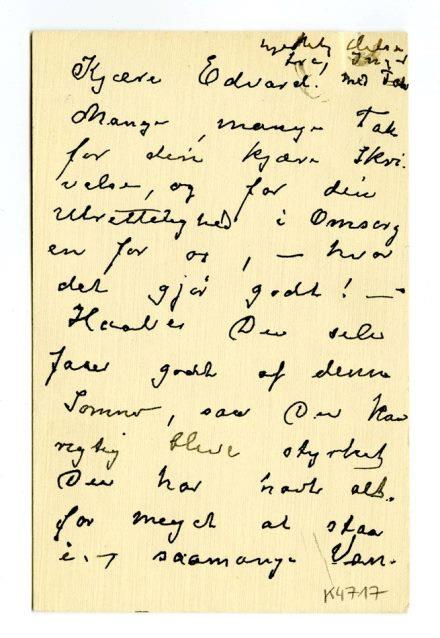 hjertelig hilsen
fra Inger
Kjære Edvard. med Tak
Mange, mange Tak
for din kjære Skri-
velse, og for din
Utrættelighed i Omsorg
en for os, — hvor
det gjør godt! —
Haaber Du selv
faar godt af denne
Sommer, saa Du kan
rigtig blive styrket
Du har havt alt-
for meget at staa
i, — saamange Van-
K4717